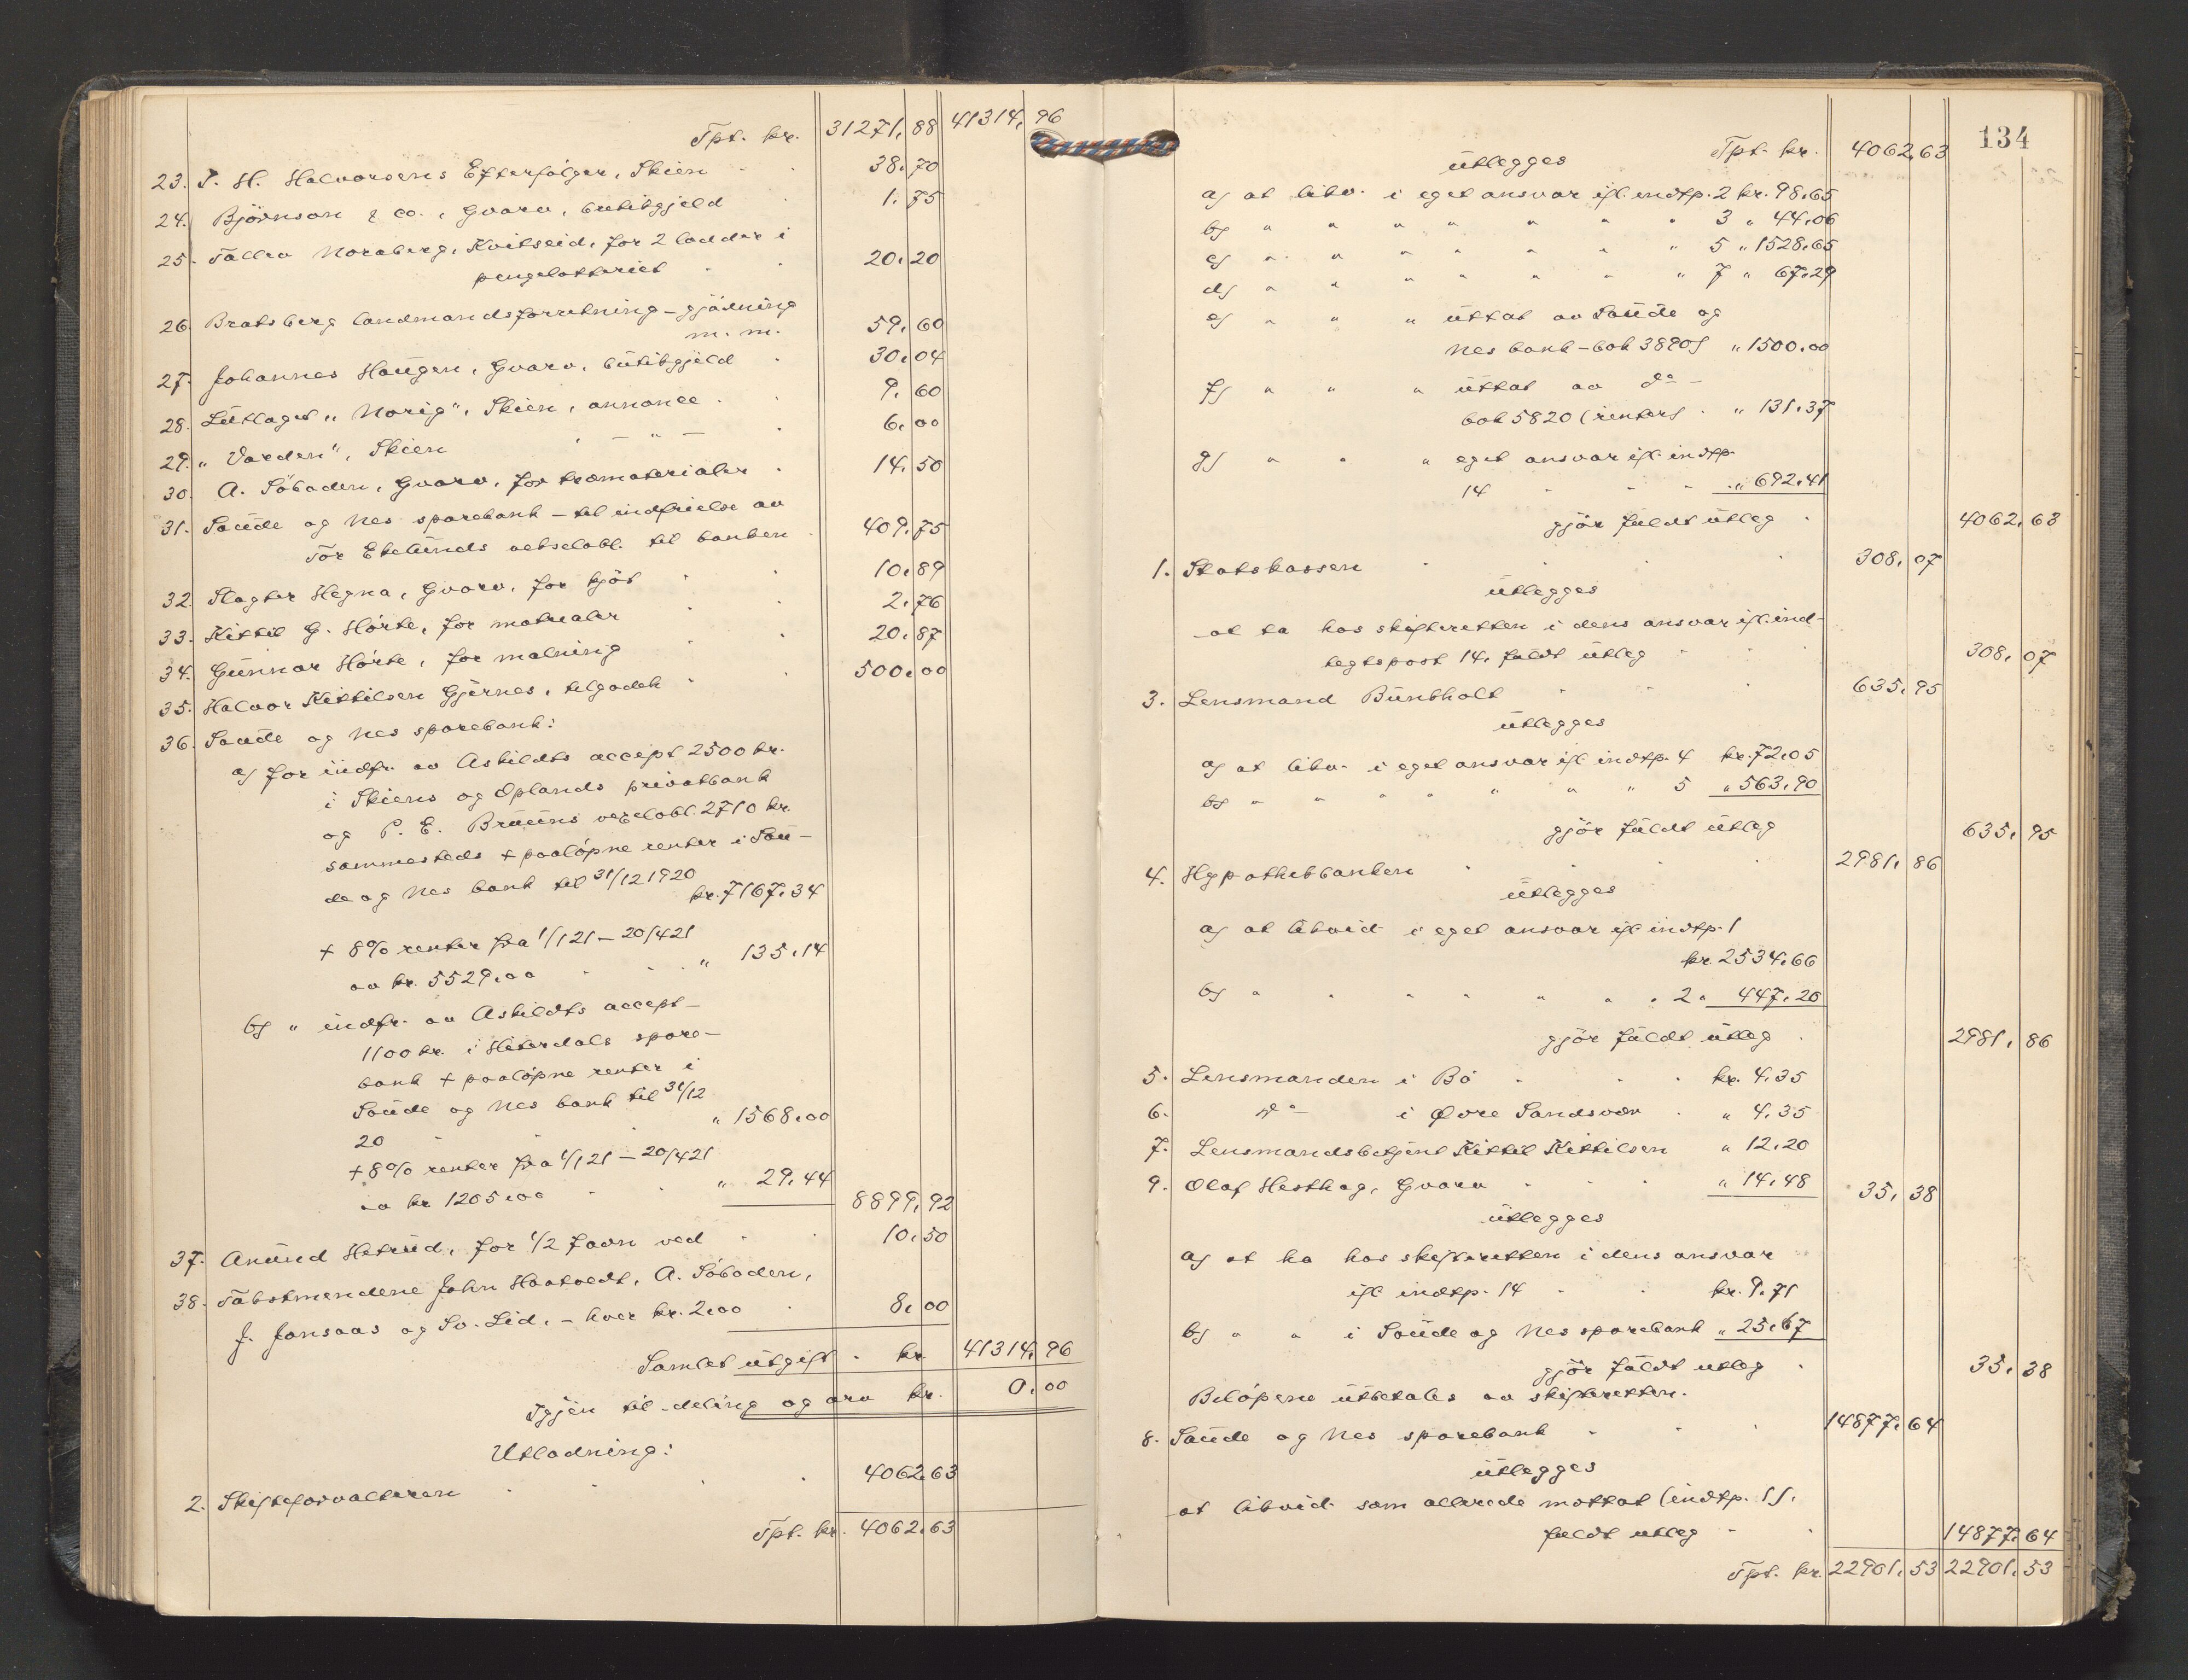 Tpt. kr. 31271,88 41314,96
23. T. H. Halvorsens Efterfølger, Skien 38,70
24. Bjørnson & co., Gvarv, butikgjeld 1,75
25. Tallev Noraberg, Kviteseid, for 2 lodder i
pengelotteriet 20,20
26. Bratsberg landmandsforretning - gjødning
m. m. 59,60
27. Johannes Haugen, Gvarv, butikgjeld 30,04
28. Lutlaget "Norig", Skien, annonce 9,60
29. "Varden", Skien — " — 6,00
30. A. Søbaden, Gvarv, for træmaterialer 14,50
31. Saude og Nes sparebank - til indfrielse av
Tor Ekelunds vekselobl. til banken 409,75
32. Slagter Hegna, Gvarv, for kjøt 10,89
33. Kittil G. Hørte, for matrealer 2,76
34. Gunnar Hørte, for malning 20,87
35. Halvor Kittilsen Gjernes, tilgodeh 500,00
36. Saude og Nes sparebank:
a) for indfr. av Askildts accept 2500 kr.
i Skiens og Oplands privatbank
og P. E. Bruuns vexelobl. 2710 kr.
sammesteds + paaløpne renter i Sau-
de og Nes bank til 31/12 1920
kr. 7167,34
+ 8% renter fra 1/1 21 - 20/4 21
av kr. 5529,00 " 135,14
b) " indfr. av Askildts accept-
1100 kr. i Hiterdals spare-
bank + paaløpne renter i
Saude og Nes bank til 31/12
20 " 1568,00
+ 8% renter fra 1/1 21 - 20/4 21
av kr 1205,00 " 29,44
8899,92
37. Anund Heksud, for 1/2 favn ved 10,50
38. Takstmendene John Haatvedt, A. Søbaden,
J. Jonsaas og Sv. Lid, - hver kr. 2,00 8,00
Samlet utgift kr 41314,96
Igjen til deling og arv kr. 0,00
Utlodning:
2. Skifteforvalteren 4062,63
Tpt. kr. 4062,63
134
Tpt. kr. 4062,63
utlegges
a) at likv. i eget ansvar ifl. indtp. 2 kr. 98,65
b) " " " " " " " 3 " 44,06
c) " " " " " " " 5 " 1528,65
d) " " " " " " " 7 " 67,29
e) " " " uttat av Saude og
Nes bank - bok 3890) " 1500,00
f) " " " uttat av do -
bok 5820 (renter) " 131,37
g) " " " eget ansvar ifl. indtp.
14 " 692,41
gjør fuldt utleg 4062,63
1. Statskassen 308,07
utlegges
at ta hos skifteretten i dens ansvar ifl. ind-
tegtspost 14, fuldt utleg 308,07
3. Lensmand Bunkholt 635,95
utlegges
a) at likv. i eget ansvar ifl. indtp. 4 kr. 72,05
b) " " " " " " " 5 " 563,90
gjør fuldt utleg 635,95
4. Hypothekbanken 2981,86
utlegges
a) at likvid. i eget ansvar ifl. indtp. 1
kr. 2534,66
b) " " " " " " " 2 " 447,20
gjør fuldt utleg 2981,86
5. Lensmanden i Bø kr. 4,35
6. do - i Øvre Sandsvær " 4,35
7. Lensmandsbetjent Kittil Kittilsen " 12,20
9. Olaf Hesthag, Gvarv " 14,48 35,38
utlegges
a) at ha hos skifteretten i dens ansvar
ifl. indtp. 14 kr. 9,71
b) " " i Saude og Nes sparebank " 25,67
gjør fuldt utleg 35,38
Beløpene utbetales av skifteretten.
8. Saude og Nes sparebank 14877,64
utlegges
at likvid. som allerede mottat (indtp. 1),
fuldt utleg 14877,64
Tpt. kr. 22901,53 22901,53